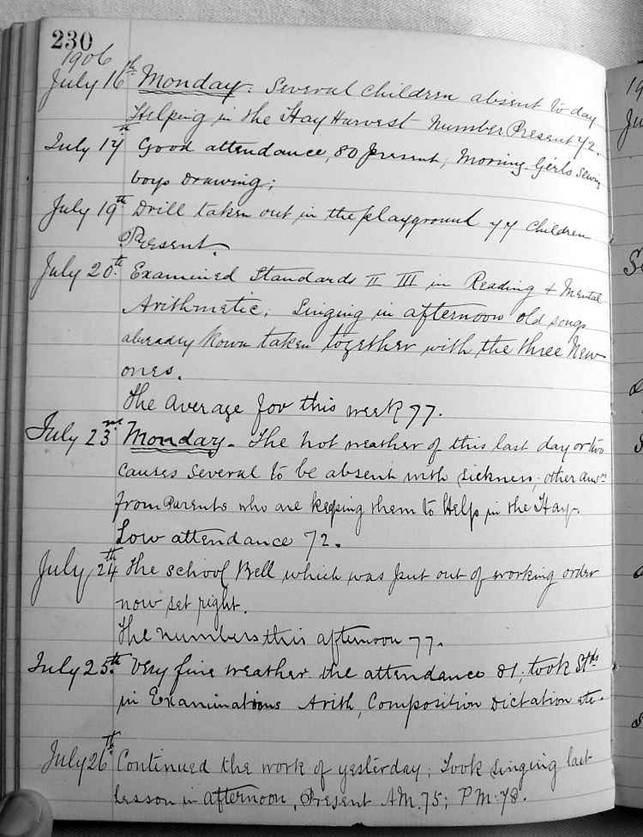 230
1906
July 16th Monday. Several children absent to day
Helping in the Hay Harvest Number Present 72.
July 17 Good attendance, 80 Present, Morning Girls Sewing
boys Drawing;
July 19th Drill taken out in the playground 77 Children
Present
July 20th. Examined Standards II III in Reading & Mental
Arithmetic; Singing in afternoon old songs
already known taken together with the three New
ones.
The Average for this week 77.
July 23rd Monday. The hot weather of this last day or two
causes several to be absent with sickness, other
from Parents who are keeping them to Help in the Hay.
Low attendance 72.
July 24th The school Bell which was put out of working order
now set right.
The numbers this afternoon 77.
July 25th. Very fine weather the attendance 81; took Stds
in Examinations Arith, Composition Dictation etc.
July 26th Continued the work of yesterday; Took singing last
lesson in afternoon, Present AM. 75; PM. 78.